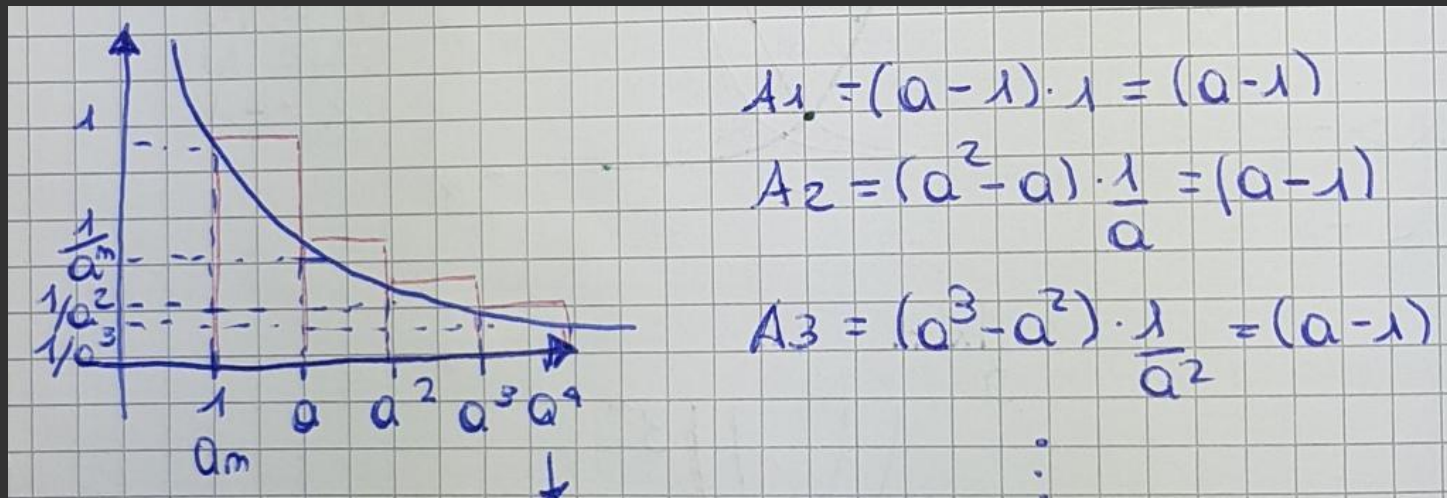 1
1/a^m
1/a²
1/a³
1 a a² a³ a⁴
am
↓
A1 = (a-1)·1 = (a-1)
A2 = (a²-a)·1/a = (a-1)
A3 = (a³-a²)·1/a² = (a-1)
⋮